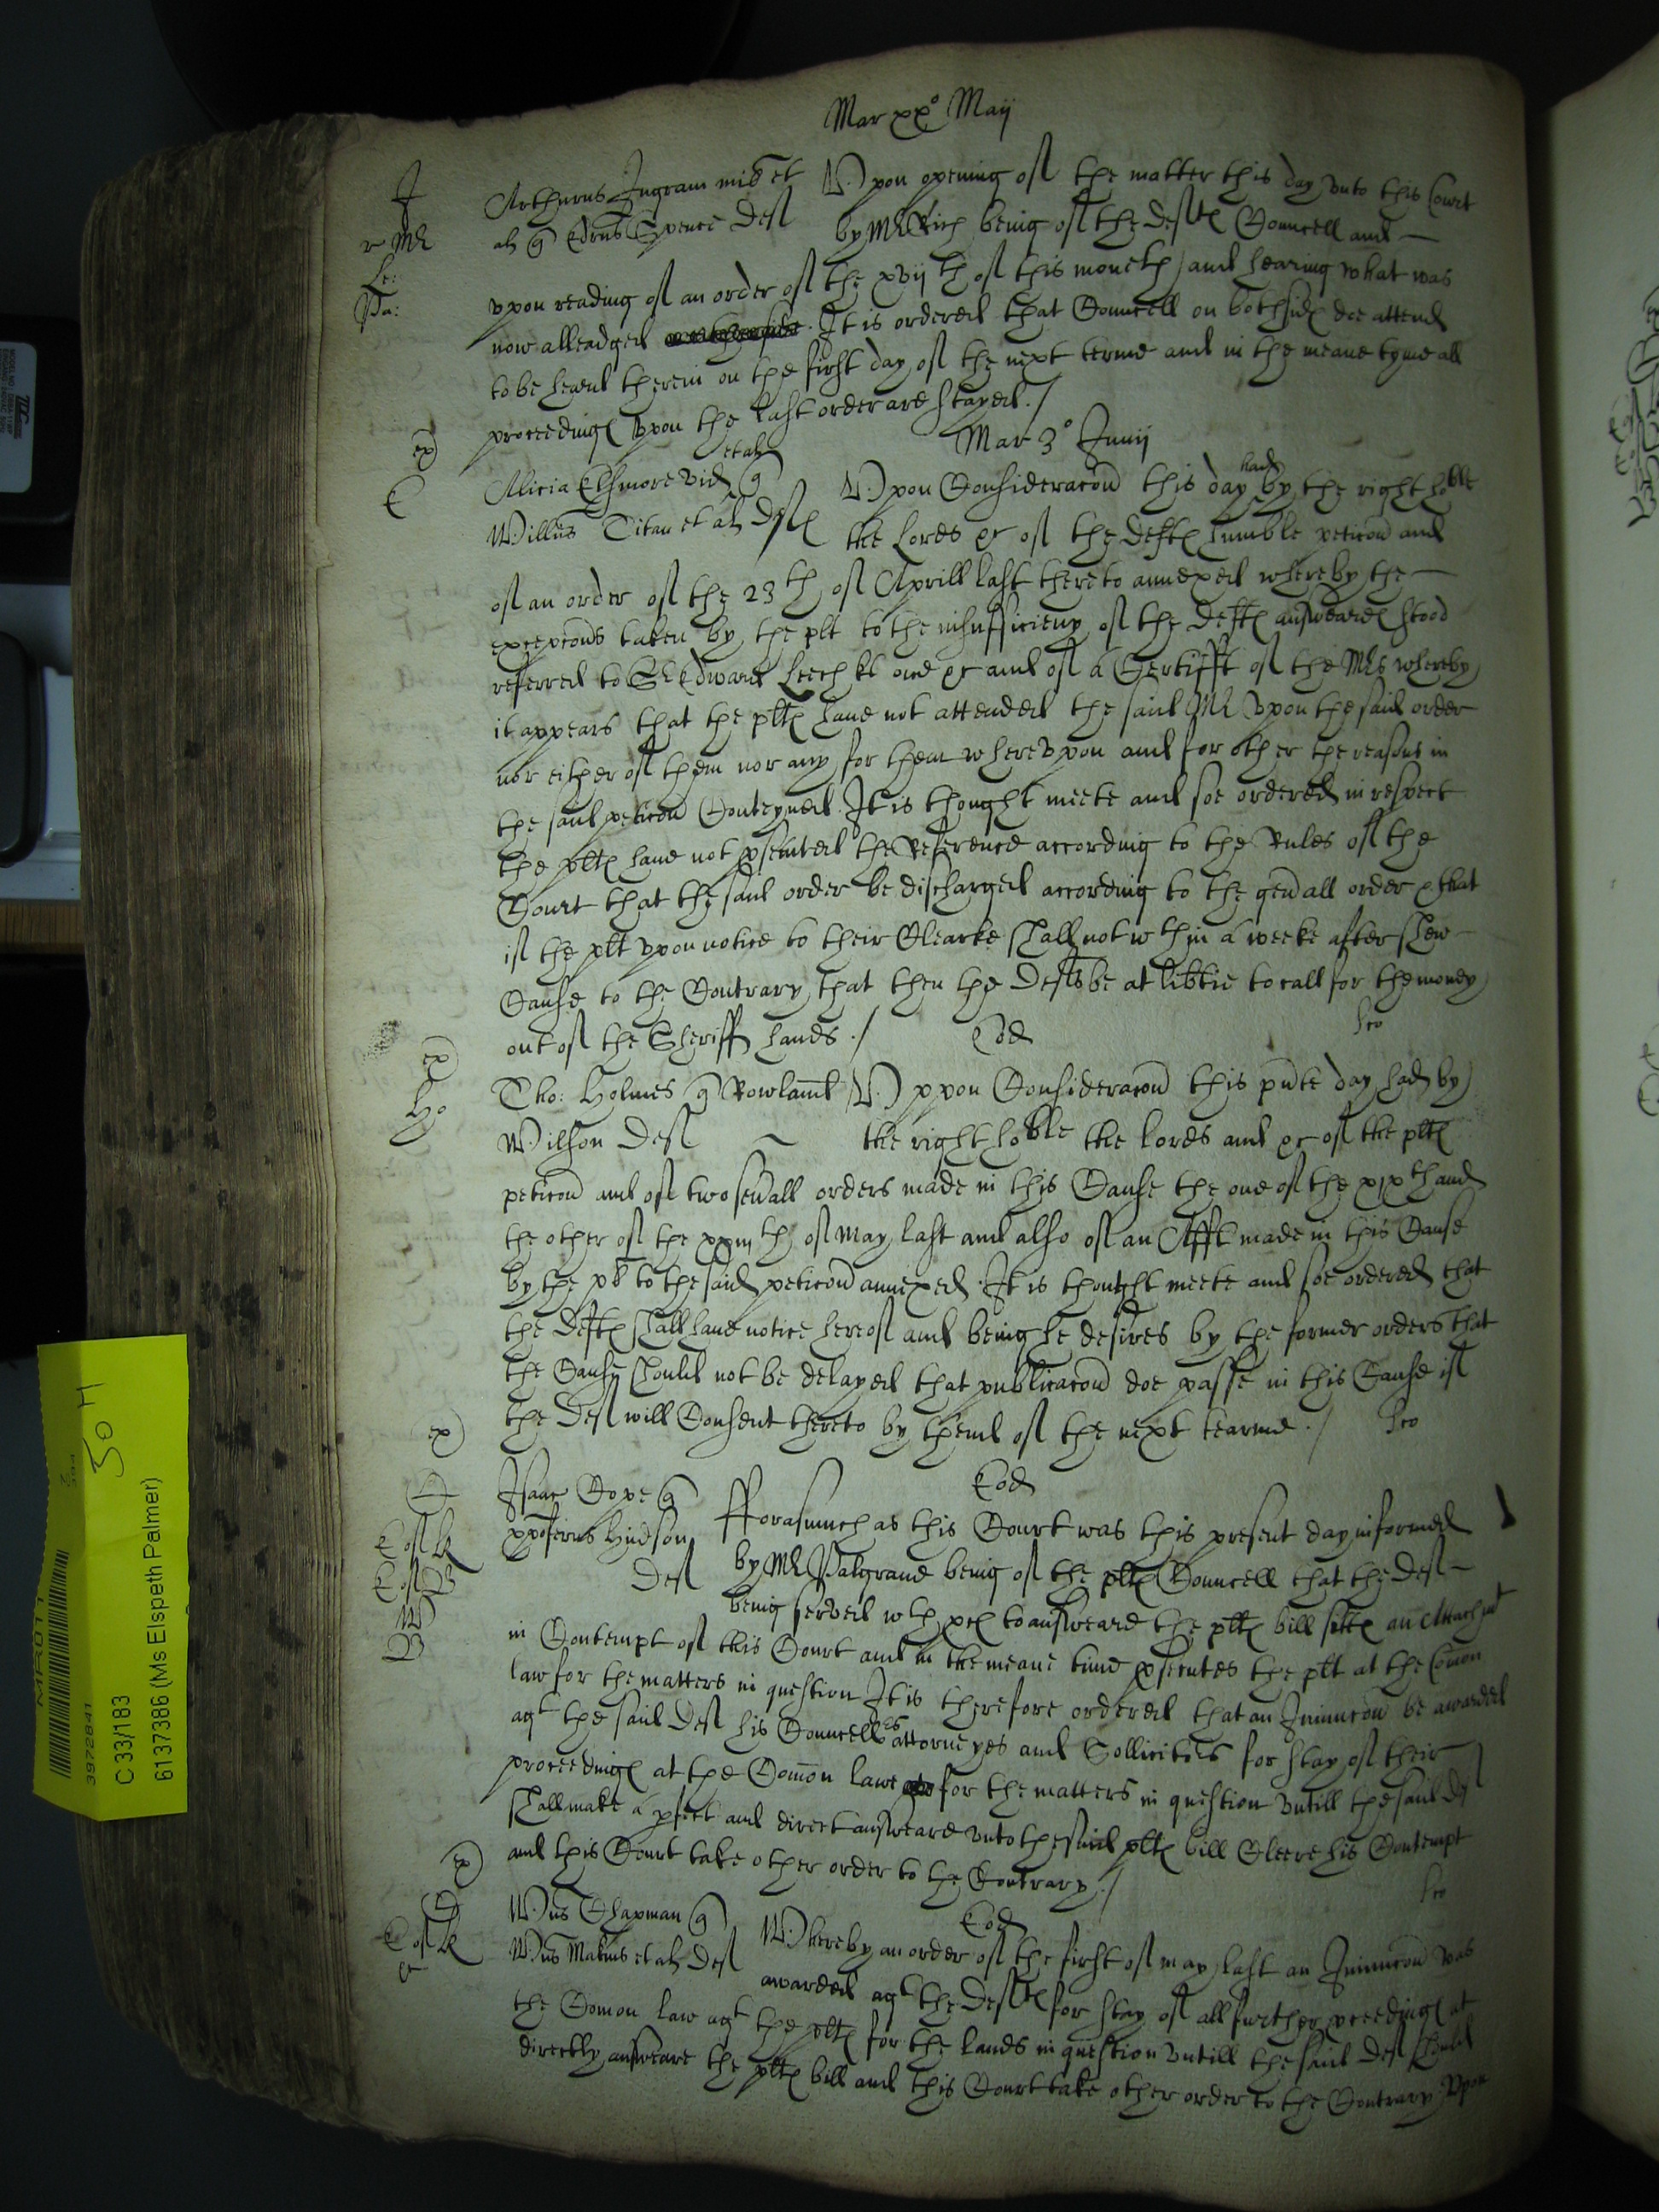 Mar xxo Maij
J
Arthurus Ingram mil et
Vpon opening of the matter this day vnto this Court
r Mr
al q Edrus Spence Def
by Mr Rich being of the Deftes Councell and
Le:
Pa:
vpon reading of an order of the xvijth of this moneth and hearing what was
now alleadged It is ordered that Councell on bothsides doe attend
to be heard therein on the first day of the next terme and in the meane tyme all
proceedinges vpon the last order are stayed ./
ex
et al
Mar 3o Junij
E
Alicia Elsmore vid q
Vpon Consideracon this day had by the right hoble
Willus Titan et al Defes
the Lords &c of the Deftes humble peticon and
of an order of the 23th of Aprill last thereto annexed whereby the
excepcons taken by the plt to the insufficiency of the Deftes answeares stood
referred to Sr Edward Leech kt one &c and of a Certifft of the Mrs whereby
it appears that the pltes haue not attended the said Mr vpon the said order
nor either of them nor any for them wherevpon and for other the reasons in
the said peticon Conteyned. It is thought meete and soe ordered in respect
the pltes haue not psented the Reference according to the Rules of the
Court that the said order be discharged according to the genall order & that
if the plt vpon notice to their Clearke shall not wthin a weeke after shew
Cause to the Contrary that then the Defts be at libtie to call for the money
out of the Sheriff hands ./
Eod
ex
Ho
Tho: Holmes q Rowland
Vppon Consideracon this pnte day had by
Wilson Def
the right hoble the lords and &c of the pltes
peticon and of two seuall orders made in this Cause the one of the xixth and
the other of the xxiijth of May last and also of an Afft made in this Cause
by the plt to the said peticon annexed. It is thought meete and soe ordered that
the Deftes shall haue notice hereof and being he desires by the former orders that
the Cause should not be delayed that publicacon doe passe in this Cause if
the Def will Consent thereto by thend of the next tearme ./
ex
Isaac Cope q
Eod
xpoferus Hudson
Def
fforasmuch as this Court was this present day informed
by Mr Palgraue being of the pltes Councell that the Def
E of K
E of B
W
B
being serued wth pces to answeare the pltes bill sittes an Attachmt
in Contempt of this Court and in the meane time psecutes the plt at the Comon
law for the matters in question It is therefore ordered that an Iniuncon be awarded
agt the said Def his Councellers attorneyes and Sollicitors for stay of their
proceedinges at the Comon lawe for the matters in question vntill the said Def
shall make a pfect and direct answeare vnto the said pltes bill Cleere his Contempt
and this Court take other order to the Contrary ./
ex
Wus Chapman q
Eod
E of K
Wus Makins et al Def
Whereby an order of the first of may last an Iniuncon was
awarded agt the Deftes for stay of all further pceedinges at
the Comon law agt the pltes for the lands in question vntill the said Def should
directly answeare the pltes bill and this Court take other order to the Contrary Vpon
MR011
3972841
C 33/183
6137386 (Ms Elspeth Palmer)
30 H